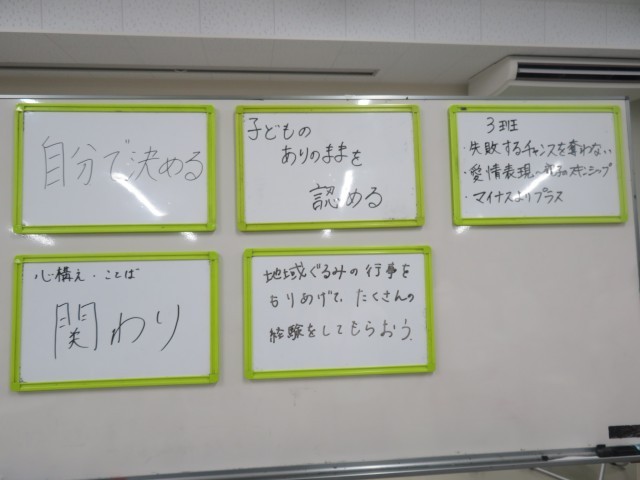 自分で決める
子どもの
ありのままを
認める
3班
・失敗するチャンスを奪わない
・愛情表現〜親子のスキンシップ
・マイナスよりプラス
心構え・ことば
関わり
地域ぐるみの行事を
もりあげて、たくさんの
経験をしてもらおう。